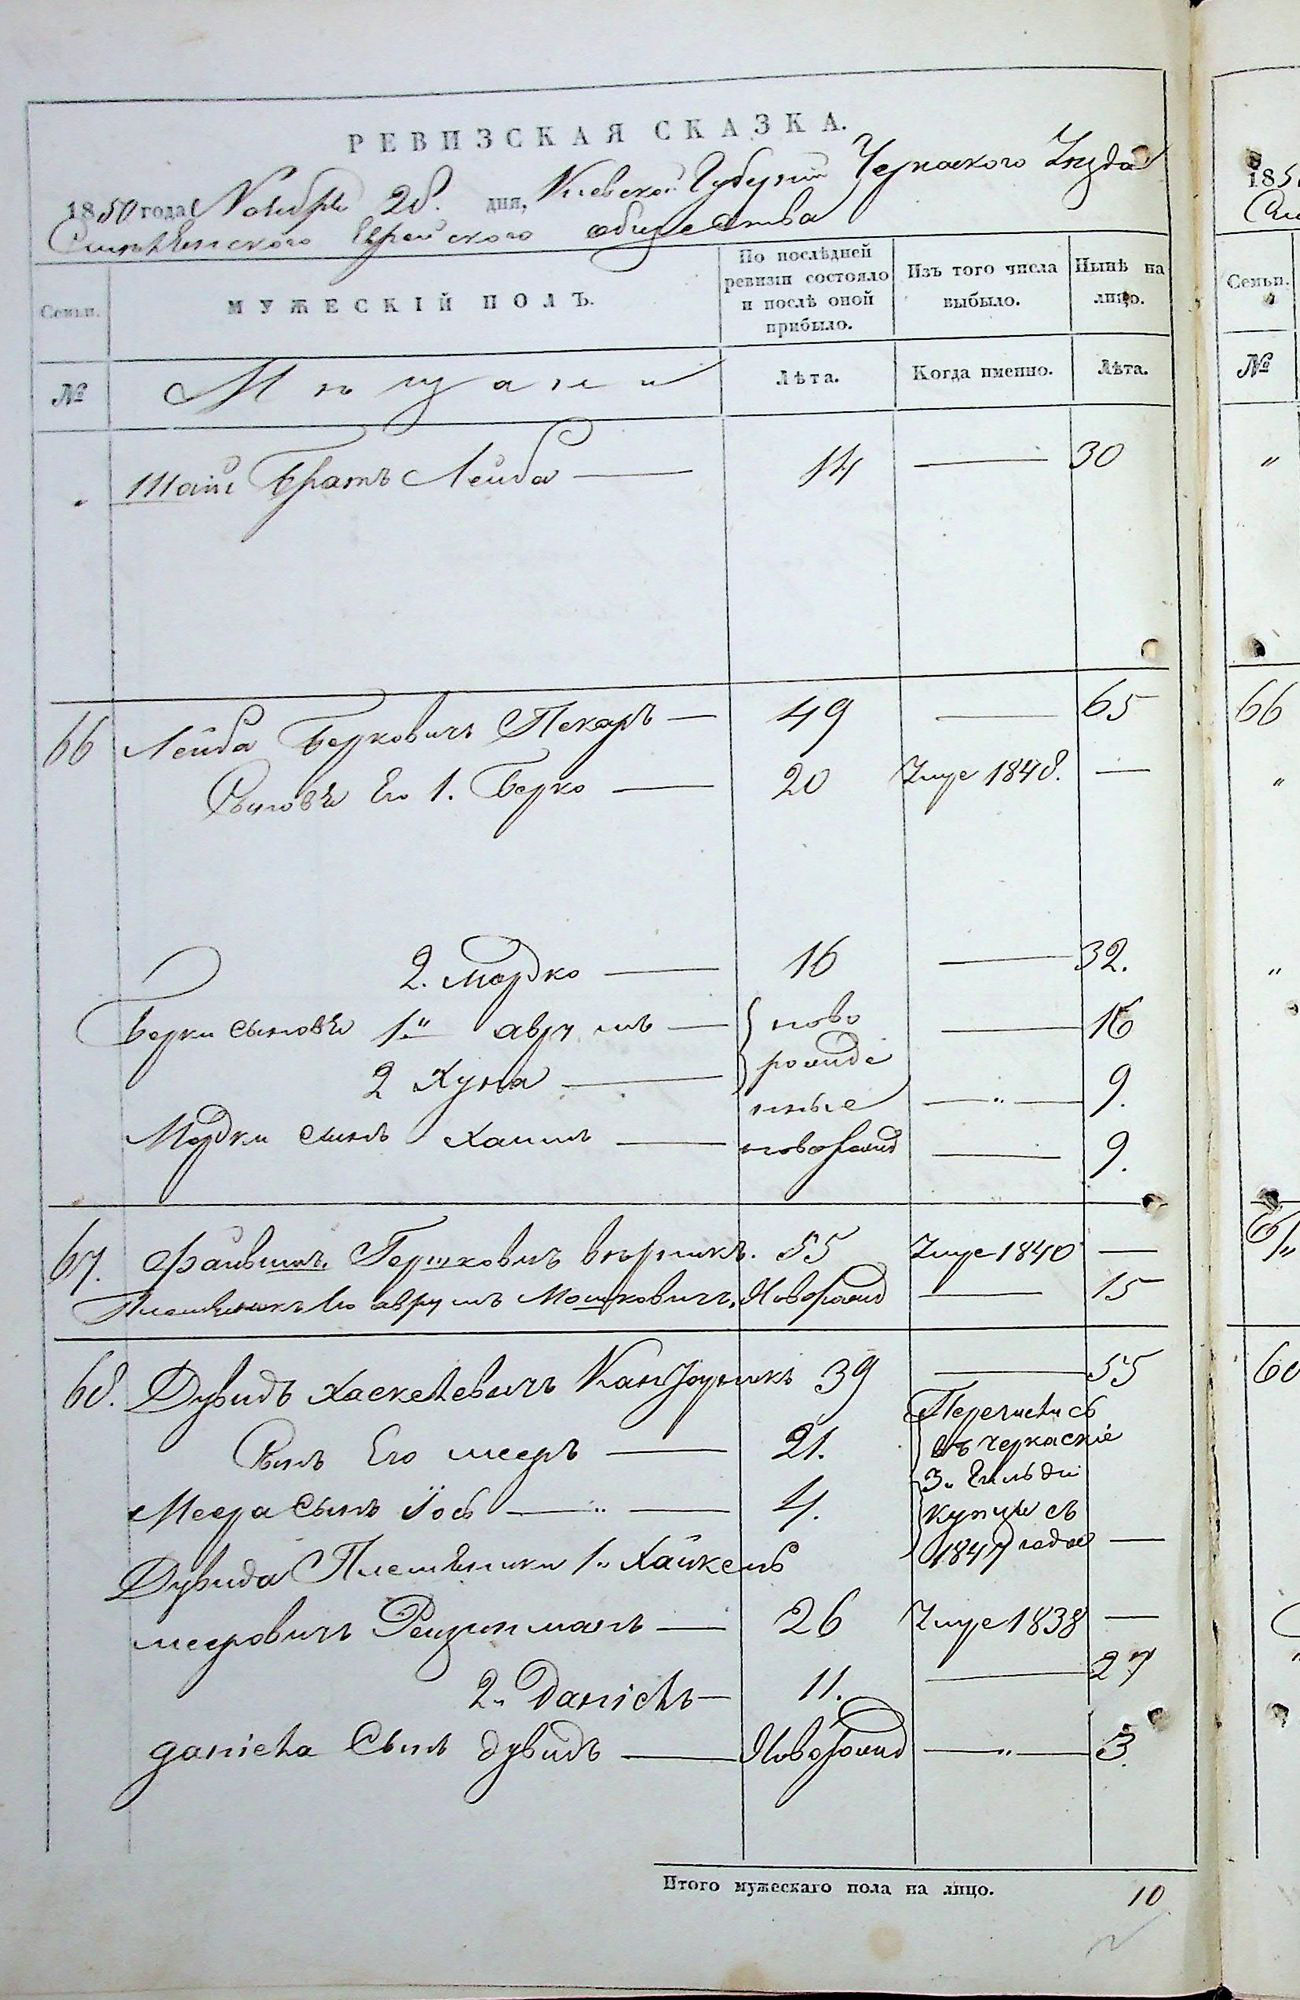 РЕВИЗСКАЯ СКАЗКА.
1850 года Ноября 28. дня, Киевской Губернии Черкаского Уезда
Смелянского Еврейского общества
Семьи. МУЖЕСКІЙ ПОЛЪ. По послѣдней ревизіи состояло и послѣ оной прибыло. Изъ того числа выбыло. Нынѣ на лицо.
№ Мѣщане Лѣта. Когда именно. Лѣта.
" Шаи Братъ Лейба — 14 — 30
66 Лейба Берковичъ Пекаръ — 49 — 65
Сыновья Его 1. Берко — 20 Умре 1848. —
2. Мордко — 16 — 32.
Берки сыновья 1й Аврумъ — ново — 16
рожде
2 Хуна — нные — " — 9.
Мордки сынъ Хаимъ — новорожд — 9.
67. Файвишъ Гершковичъ 55 Умре 1840 —
Племянникъ Его Аврумъ Мошковичъ. Новорожд — 15
68. Дувидъ Хаскелевичъ 39 — 55
Сынъ Его Мееръ — 21. Перечислисъ
въ черкаскіе
Меера Сынъ Іось — " — 4. 3й Гильдіи
купцы съ
1847 года —
Дувида Племянники 1й Хайкель
Мееровичъ — 26 Умре 1838 —
2й Данiель — 11. — 27
Данiела Сынъ Дувидъ — Новорожд — " — 3.
Итого мужескаго пола на лицо. 10
185
66
67
68
Семьи.
№